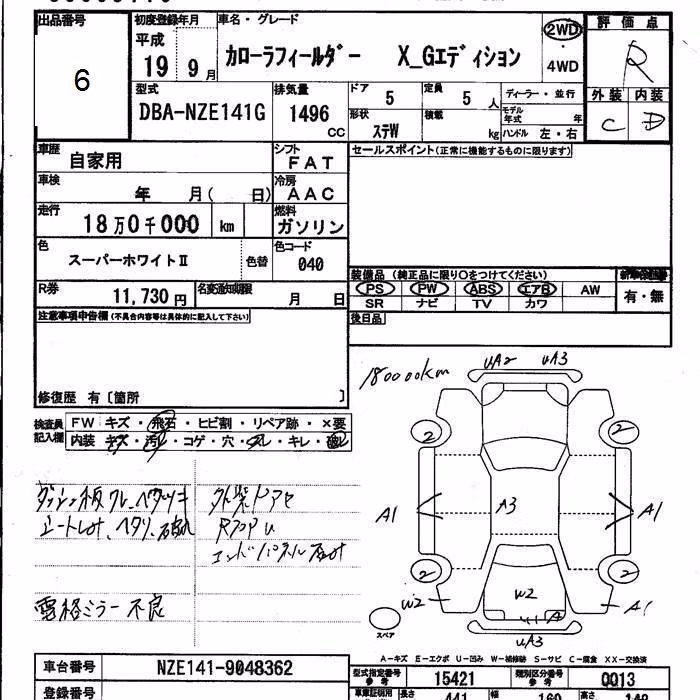 出品番号
6
初度登録年月
平成
19 9月
車名・グレード
カローラフィールダー X_Gエディション
2WD
4WD
評価点
R
外装 内装
C D
型式
DBA-NZE141G
排気量
1496
CC
ドア
5
定員
5 人
ディーラー・並行
形状
ステW
積載
kg
モデル年式 年
ハンドル 左・右
車歴
自家用
シフト
FAT
車検
年 月( 日)
冷房
AAC
走行
18万0千000 km
燃料
ガソリン
色
スーパーホワイトⅡ
色替
色コード
040
R券
11,730円
名変通知期限
月 日
セールスポイント(正常に機能するものに限ります)
装備品 (純正品に限り○をつけてください)
PS PW ABS エアB AW
SR ナビ TV カワ
有・無
後日品
注意事項申告欄(不具合内容等は具体的に記入して下さい)
修復歴 有〔箇所 〕
検査員記入欄
FW キズ・飛石・ヒビ割・リペア跡・×要
内装 キズ・汚レ・コゲ・穴・スレ・キレ・破レ
180000km
UA2 UA3
2 2
A1 A3 A1
2 2
W2 W2 A1
UA3
スペア
外装ドアセ
RコアU
不良
A-キズ E-エクボ U-凹み W-補修跡 S-サビ C-腐食 XX-交換済
車台番号
NZE141-9048362
型式指定番号
参考
15421
類別区分番号
参考
0013
登録番号
車庫証明用
参考
長さ
441
幅
169
高さ